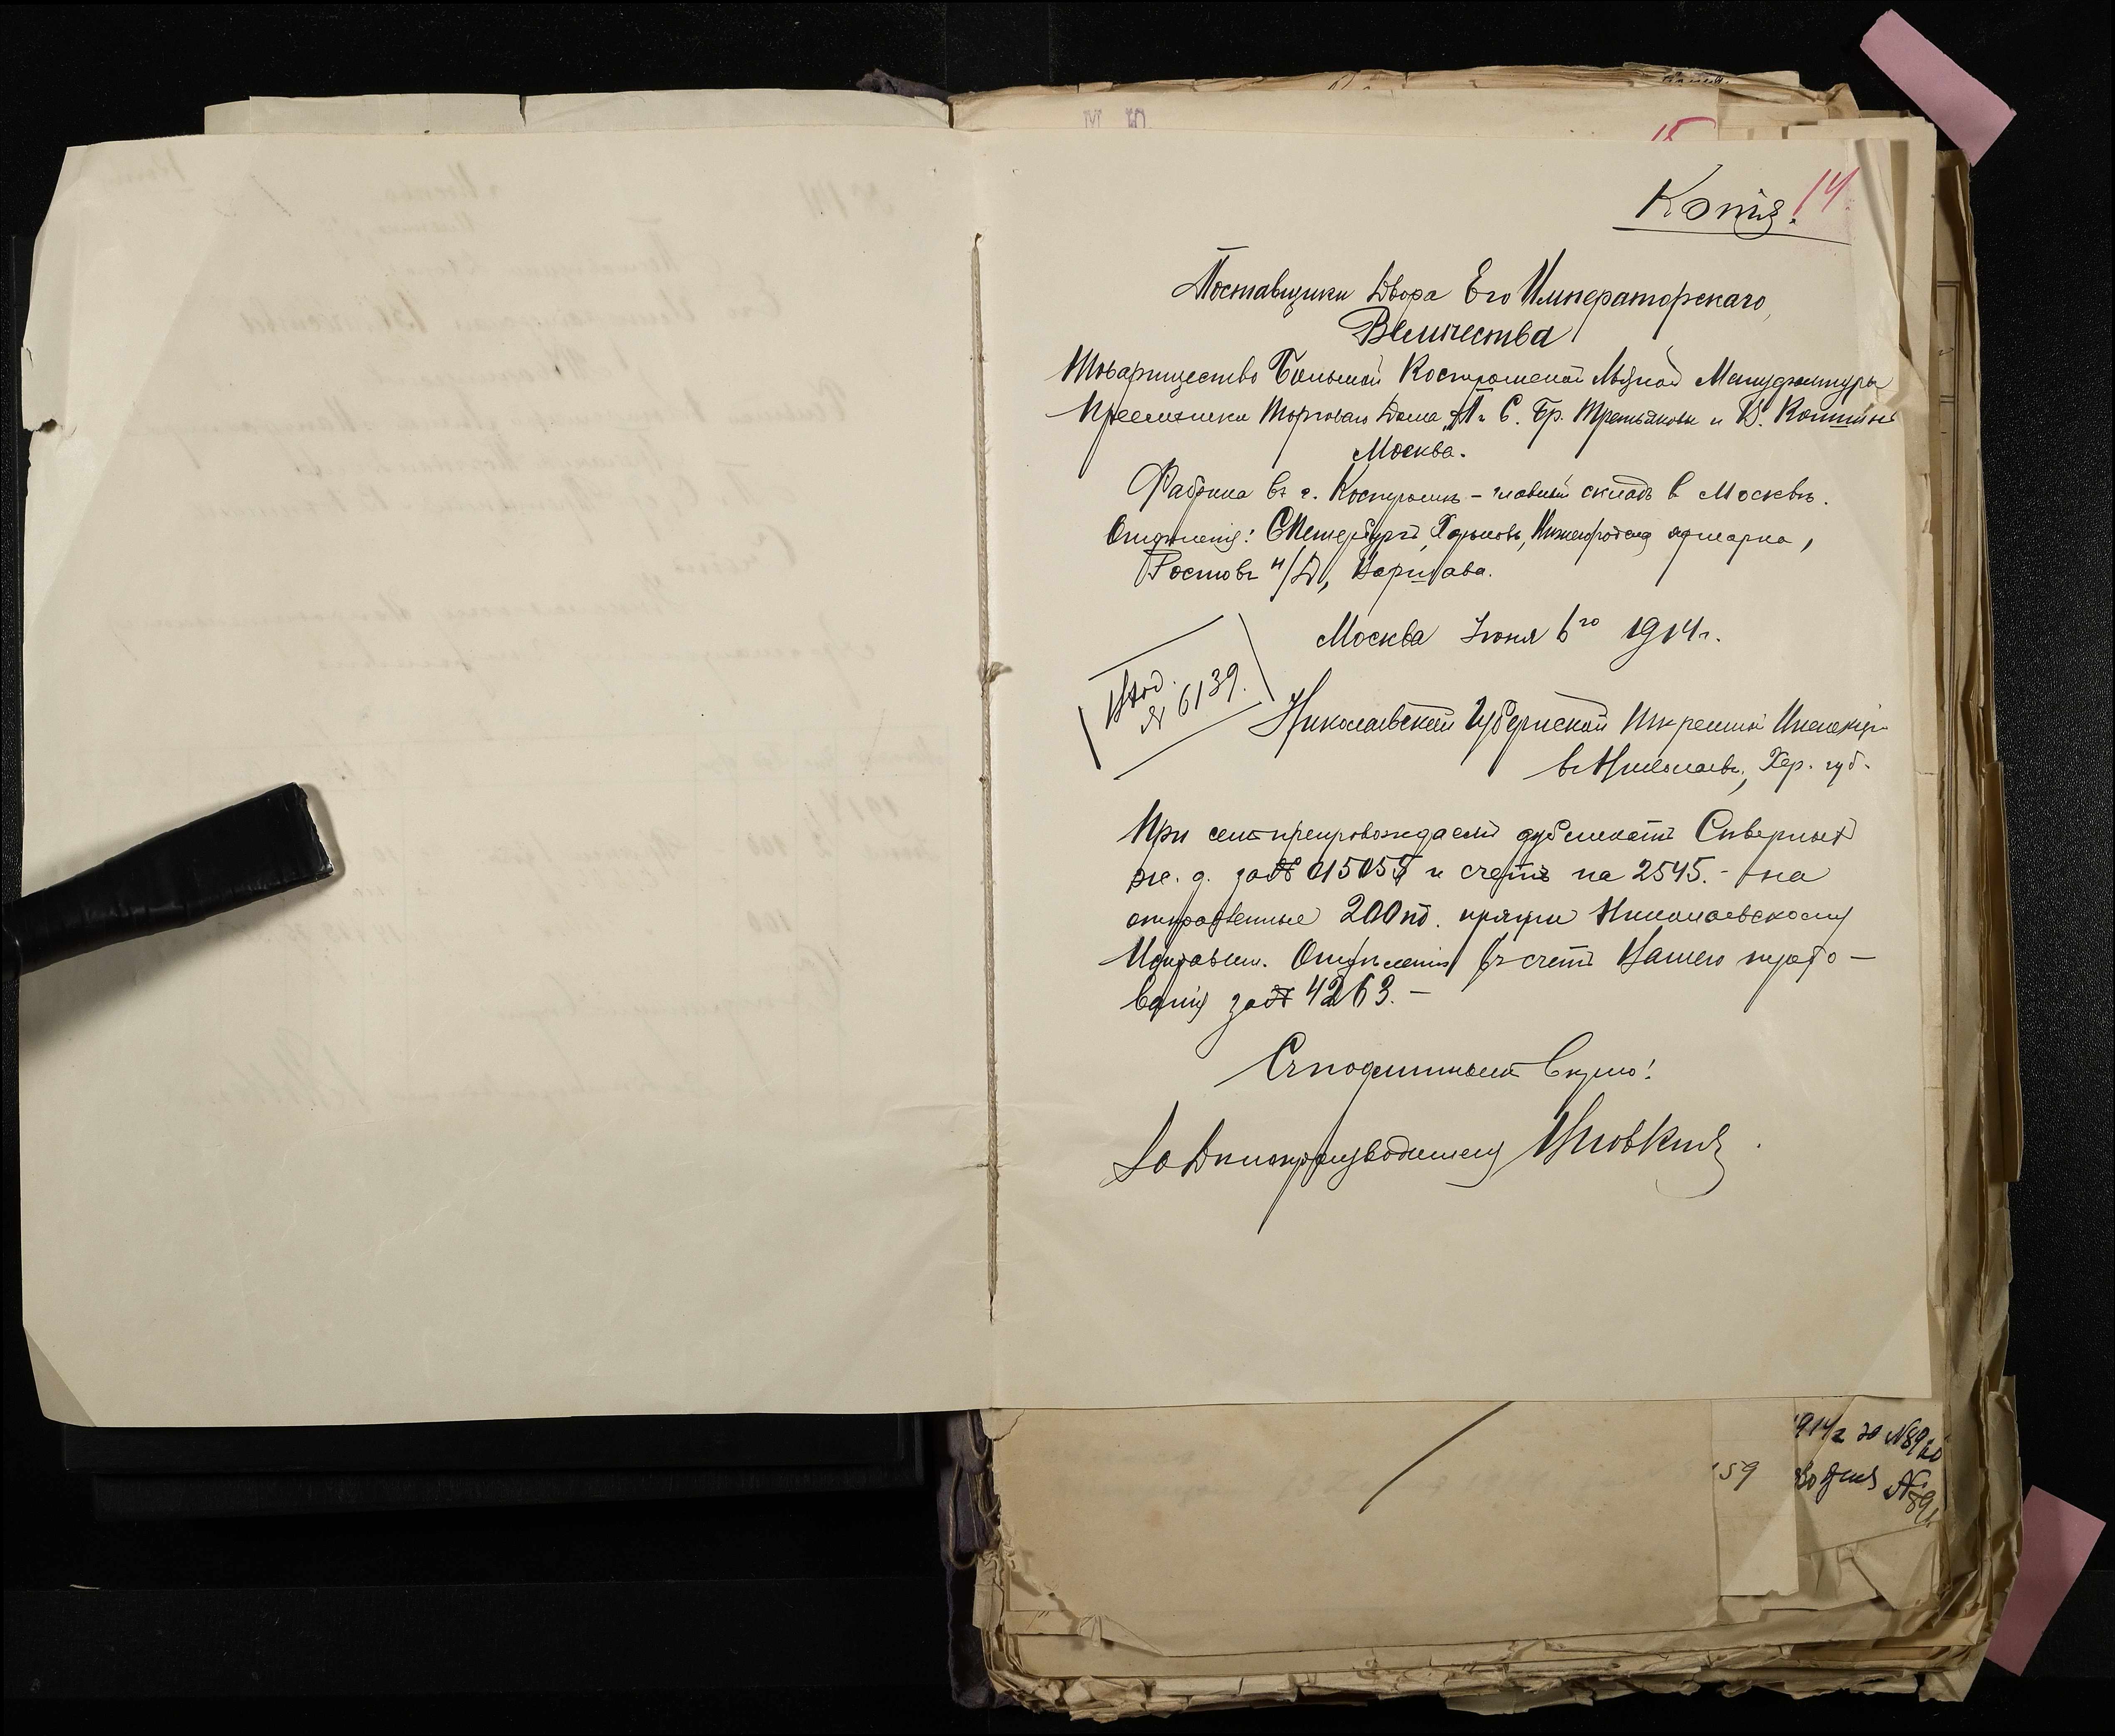 М. Ю.
15
Копія. 14
Поставщики Двора Его Императорскаго
Величества
Товарищество Большой Костромской Льняной Мануфактуры
Преемники Торговаго Дома П. и С. Бр. Третьяковы и В. Коншинъ
Москва.
Фабрика въ г. Костромѣ - главный складъ в Москвѣ.
Отдѣленія: СПетербургъ, Харьковъ, Нижегородская ярмарка,
Ростовъ н/Д, Варшава.
Москва Іюня 6го 1914 г.
Вход.
№ 6139.
Николаевской Губернской Тюремной Инспекціи
въ Николаевъ, Хер. губ.
При семъ препровождаемъ дубликатъ Сѣверныхъ
ж. д. за № и счетъ на 2545. - на
отправленные 200 пд. пряжи Николаевскому
Исправит. Отдѣленію въ счетъ Вашего требо-
ванія за № 4263. -
Съ подлиннымъ вѣрно!
За Дѣлопроизводителя
1914 г за № 89
159
№ 89